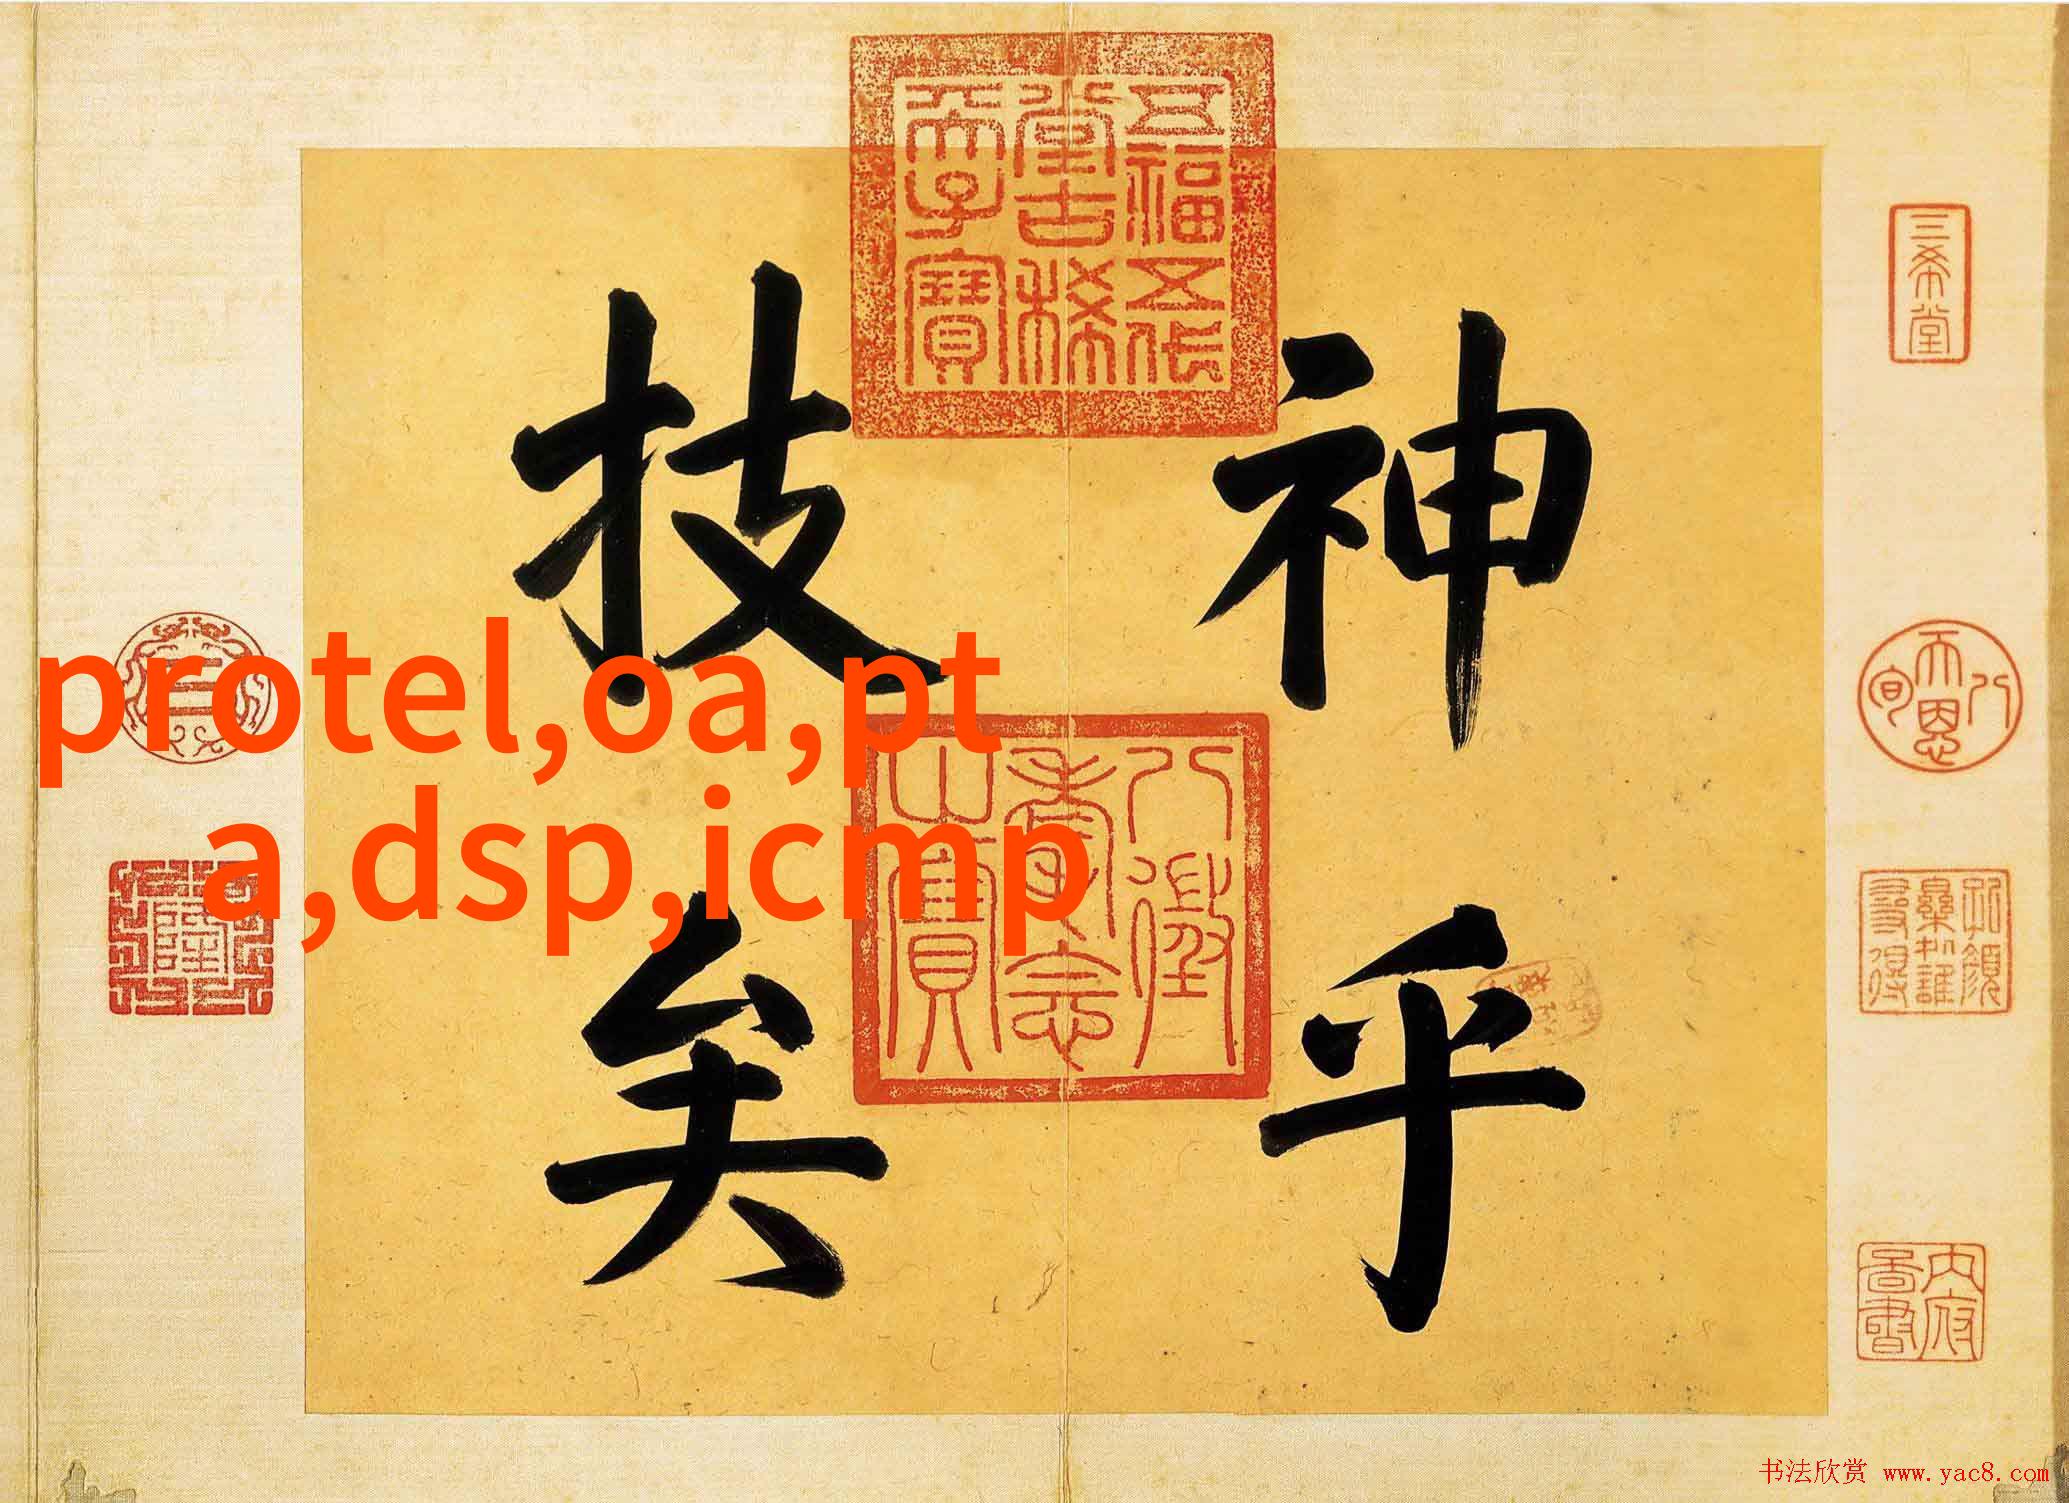 神乎
技矣
五福五代
堂古稀
天子寶
八徵
耄念
之寶
三希堂
protel,oa,pt
a,dsp,icmp
隆
书法欣赏 www.yac8.com